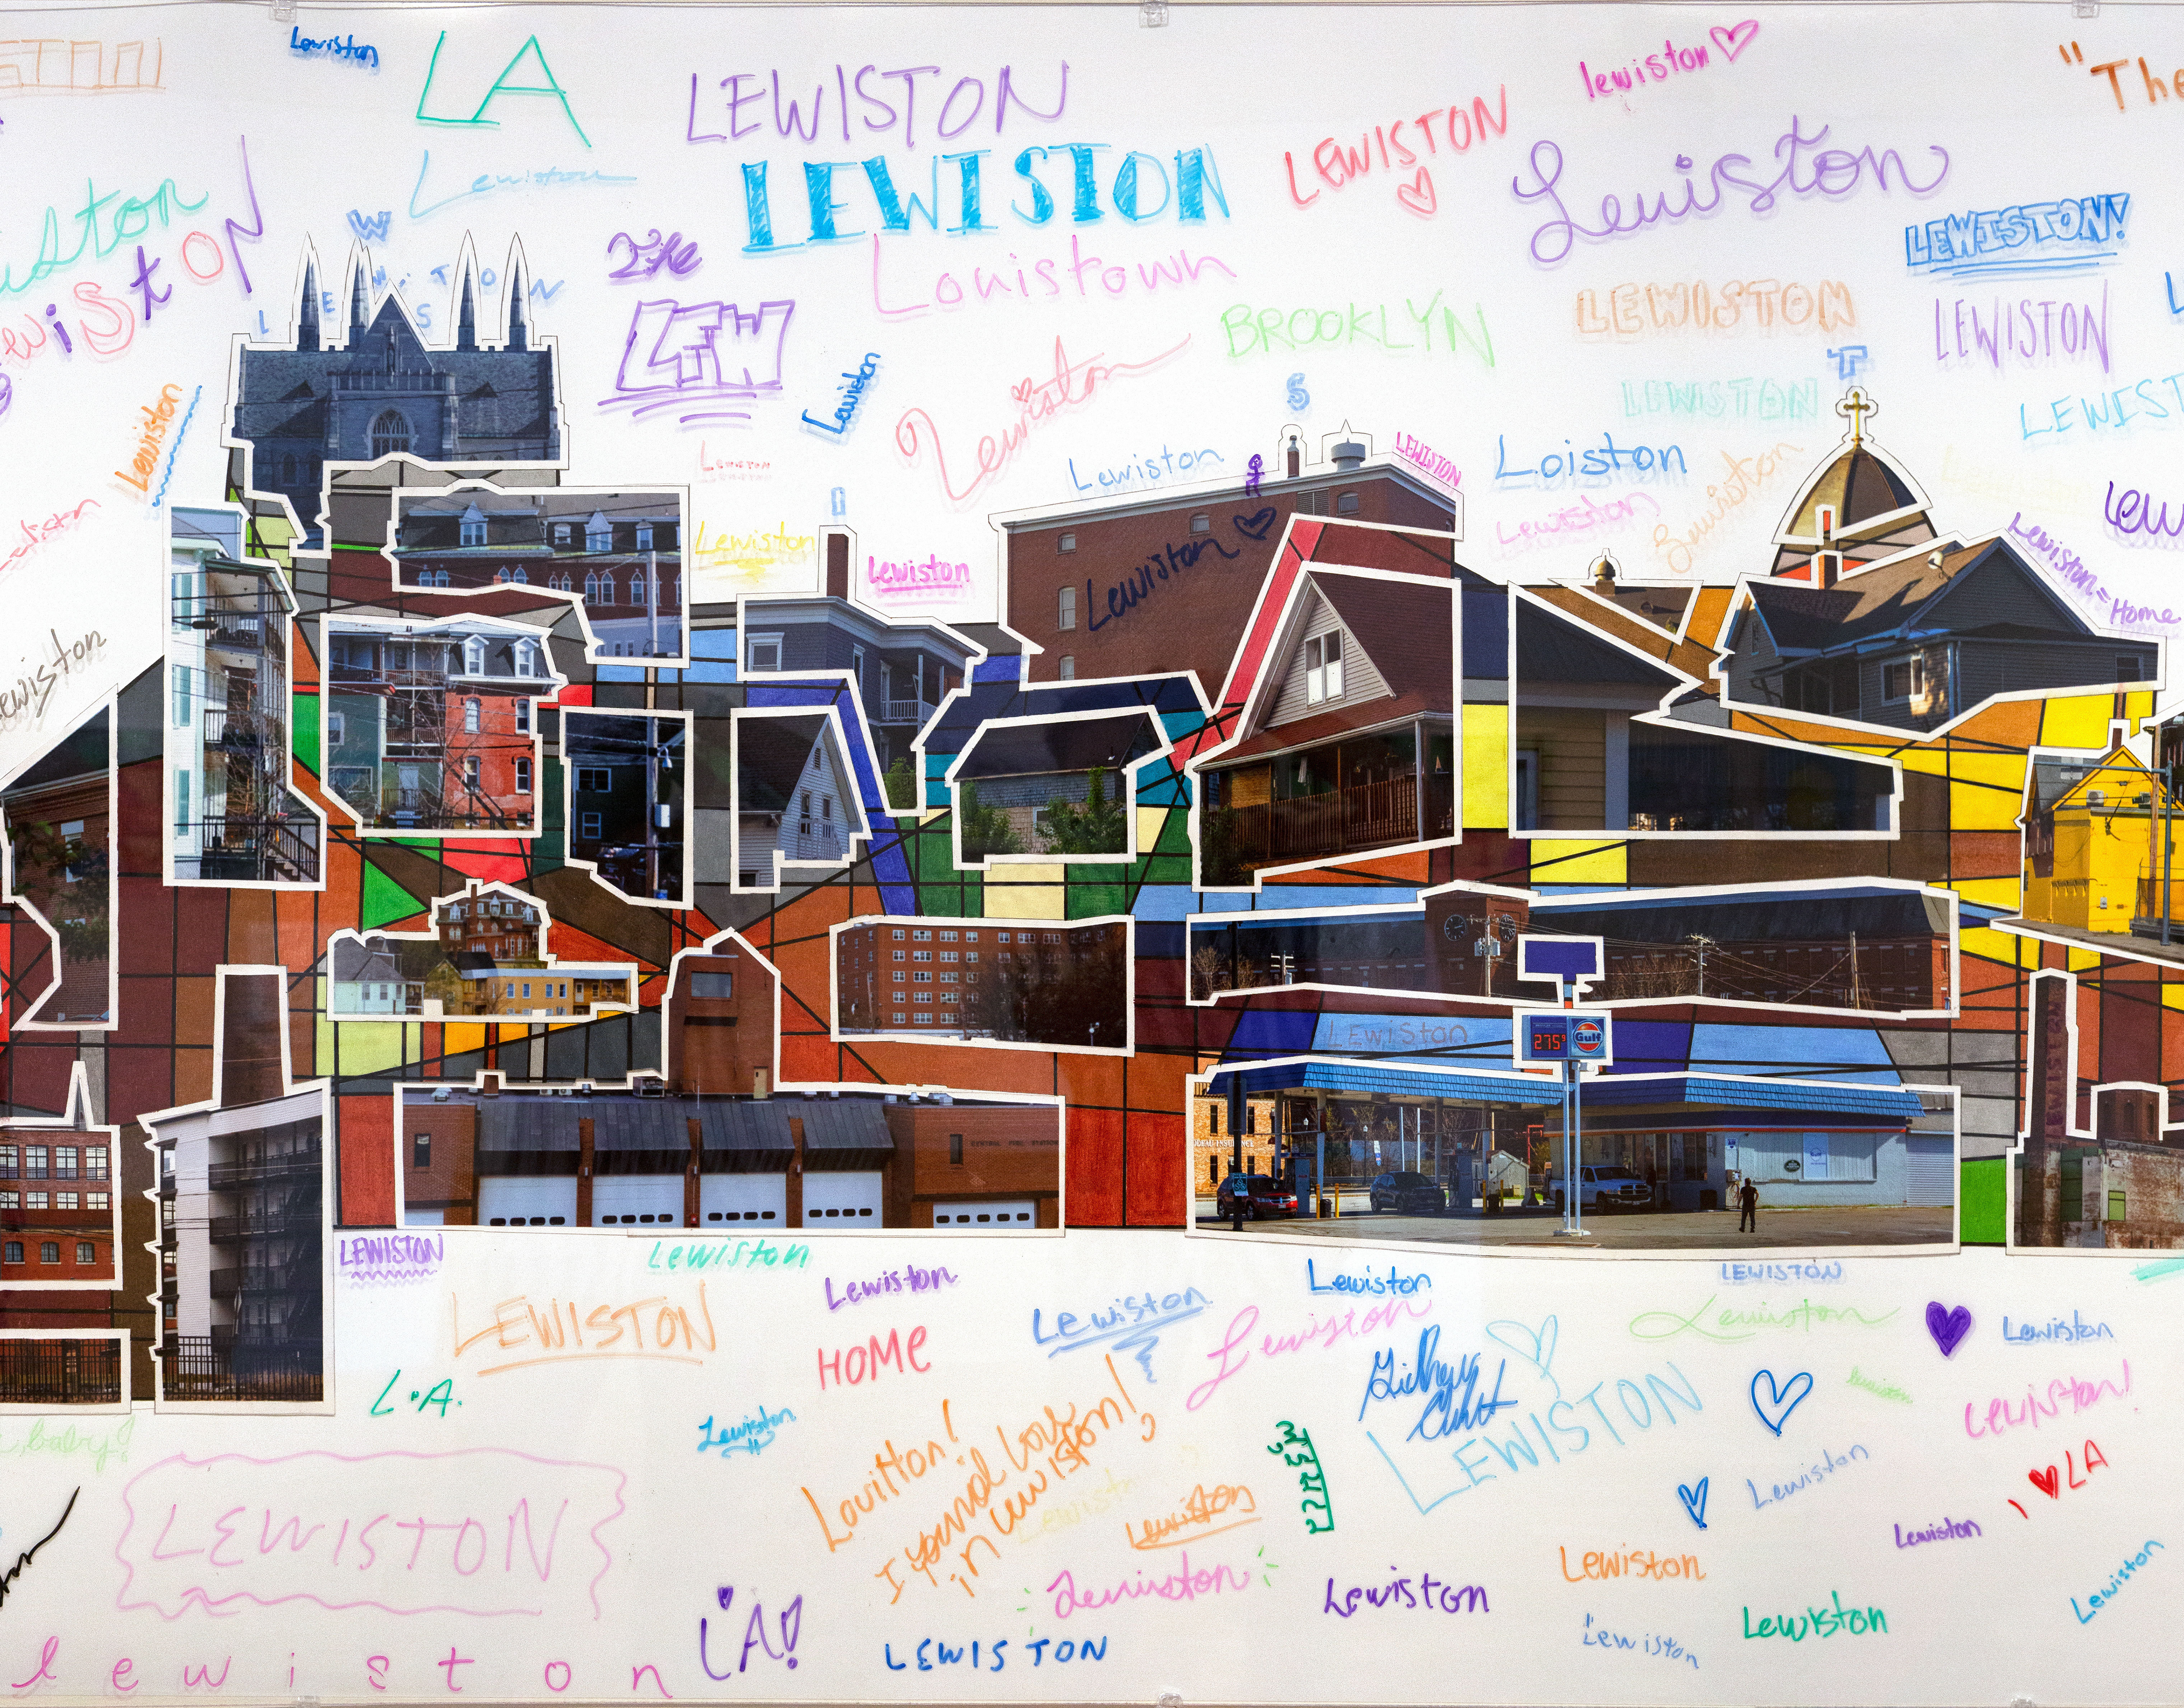 Lewiston
LA
LEWISTON
lewiston
"The
LEWISTON
LEWISTON
Lewiston
Lewiston
LEWISTON!
W
The
Louistown
LEWISTON
LEWISTON
L E W I S T O N
LEW
BROOKLYN
Lewiston
T
LEWISTON
Lewiston
S
Lewiston
LEWISTON
LEWISTON
Lewiston
Loiston
Lewiston
Lewiston
I
Lewiston
Lewiston
Lewiston
Lewiston
Lewiston = Home
LEWISTON
275⁹
Gulf
CENTRAL FIRE STATION
LEWISTON
Lewiston
Lewiston
Lewiston
LEWISTON
LEWISTON
Lewiston
Lewiston
Lewiston
Lewiston
HOME
L.A.
LEWISTON
Lewiston!
Lewiston
Louitton!
I found love
in Lewiston!
LA
Lewiston
LEWISTON
Lewiston
Lewiston
Lewiston
Lewiston
Lewiston
Lewiston
Lewiston
Lewiston
LA!
LEWISTON
lewiston